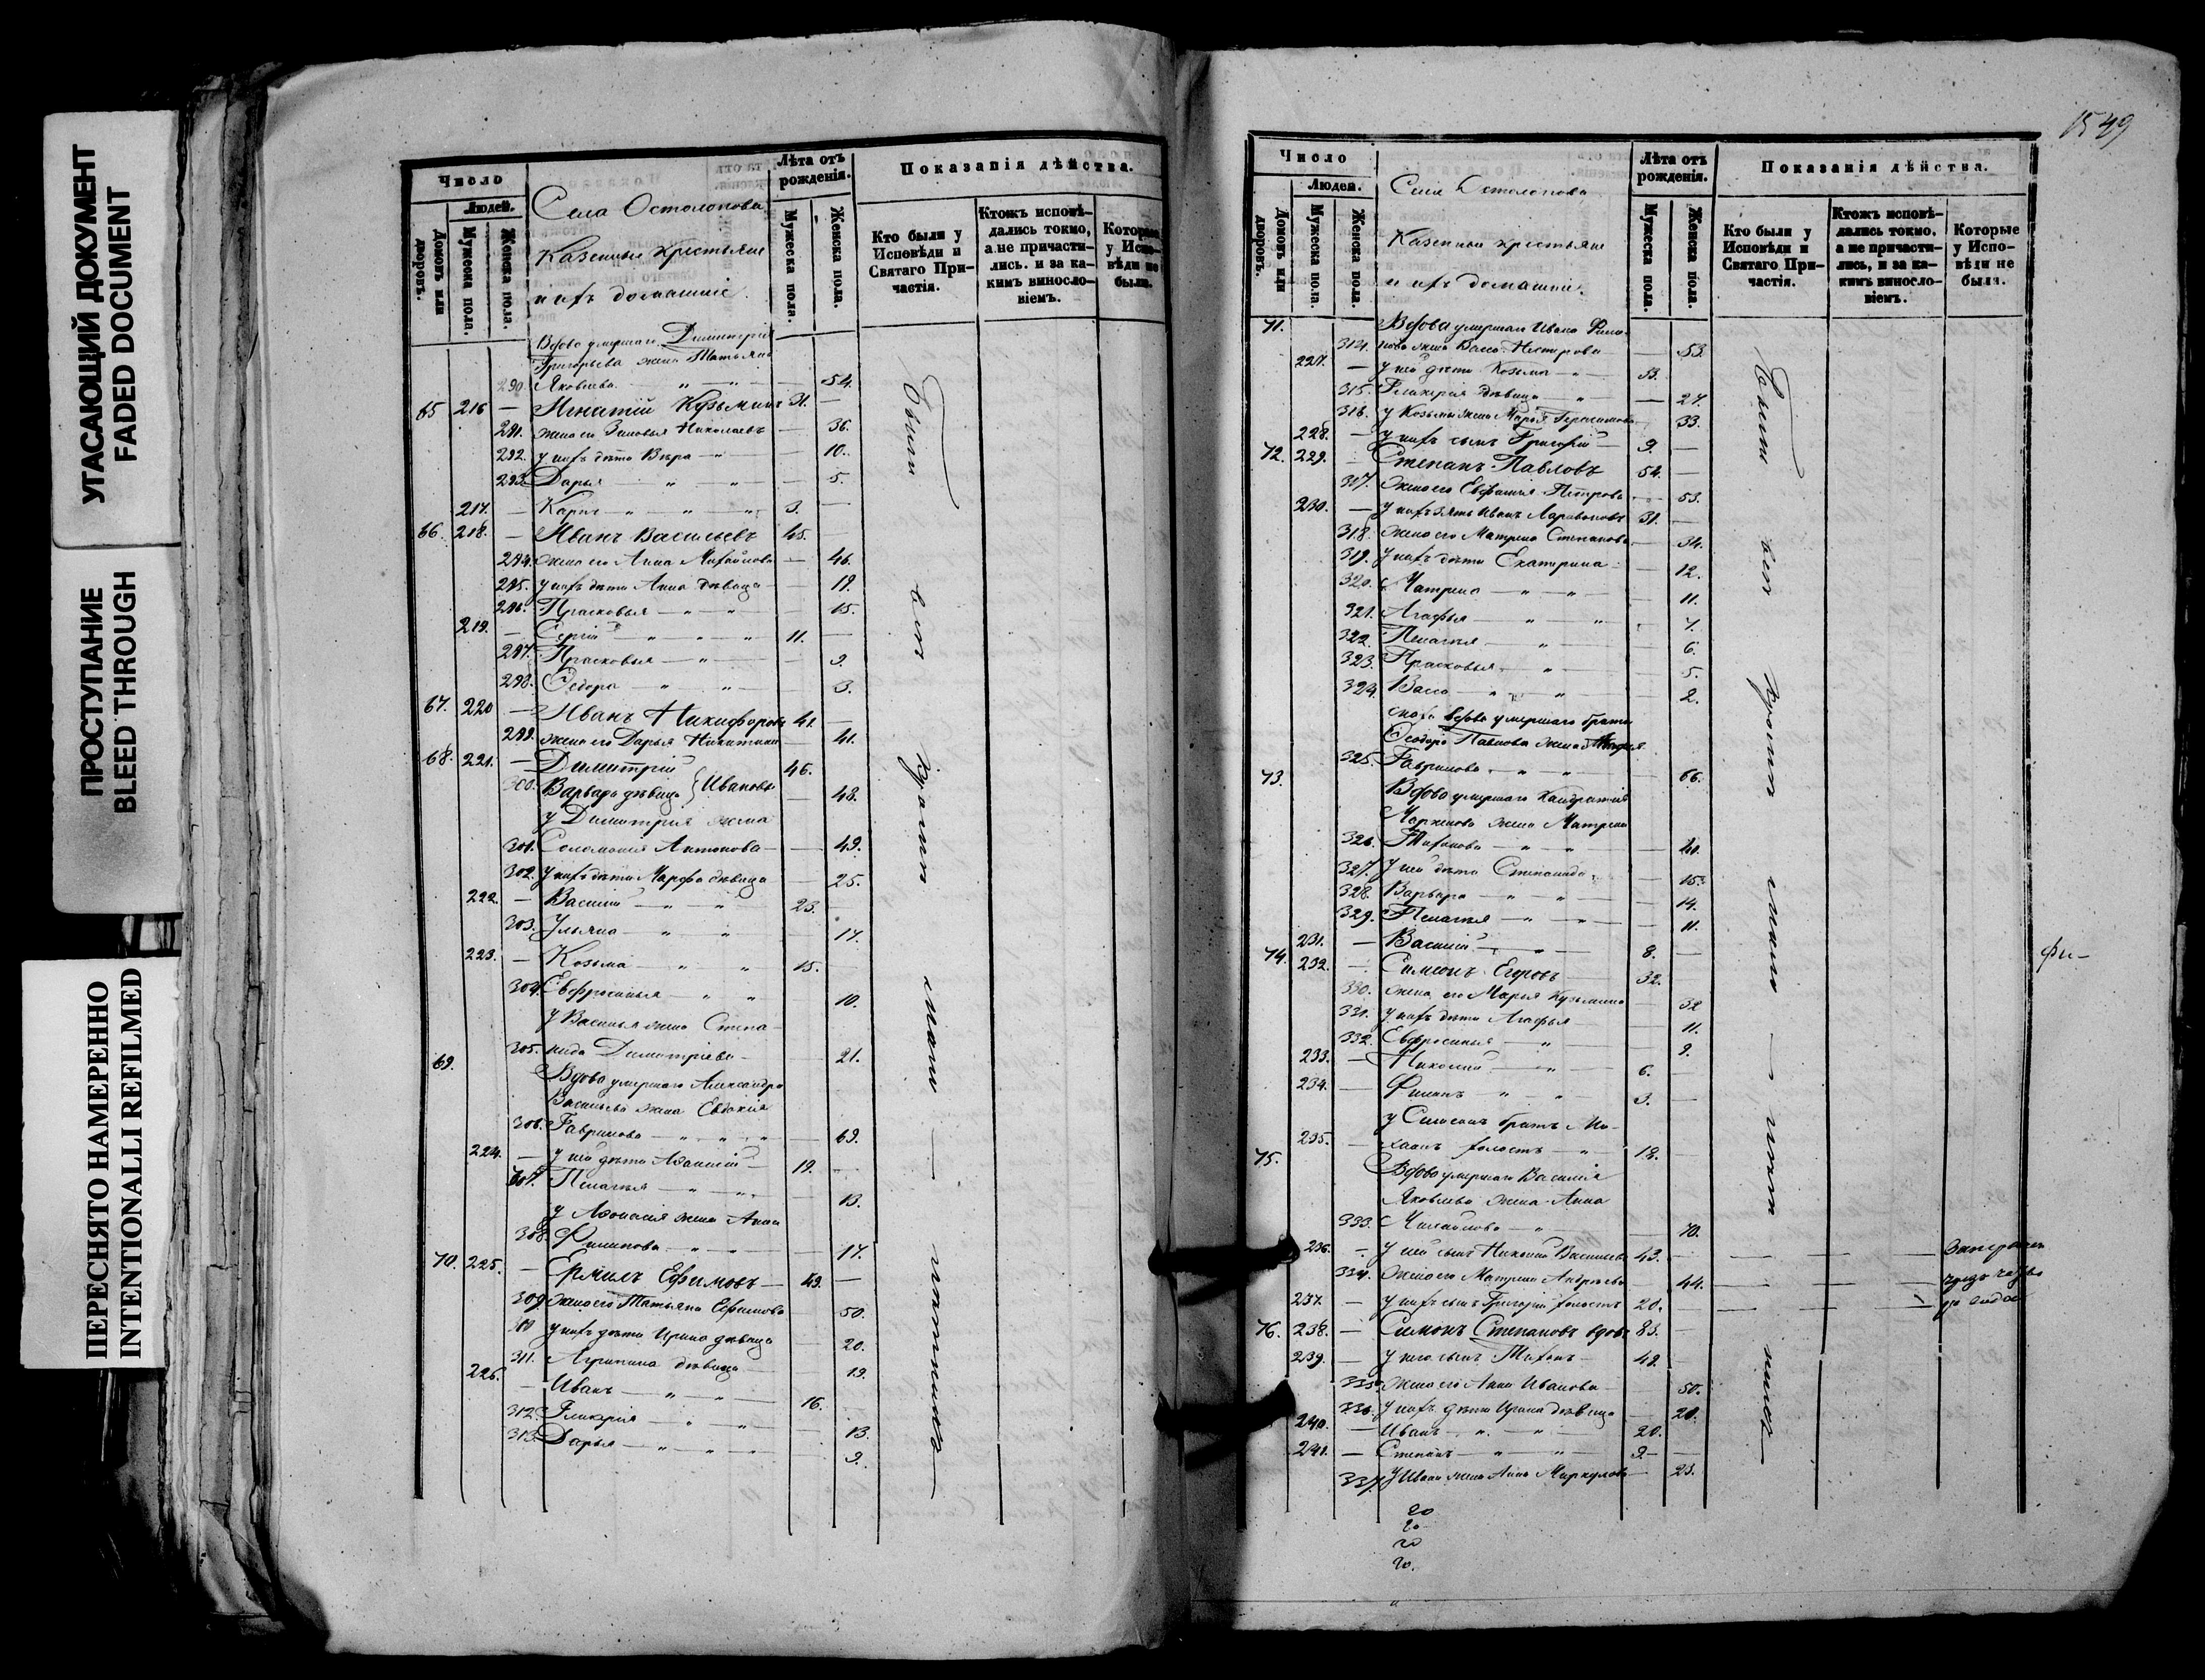 УГАСАЮЩИЙ ДОКУМЕНТ
FADED DOCUMENT
ПРОСТУПАНИЕ
BLEED THROUGH
ПЕРЕСНЯТО НАМЕРЕННО
INTENTIONALLI REFILMED
Число
Людей.
Домовъ или дворовъ.
Мужеска пола.
Женска пола.
Села Остолопова
Казенные крестьяне
и ихъ домашніе.
Лѣта отъ рожденія.
Мужеска пола.
Женска пола.
Показанія дѣйства.
Кто были у Исповѣди и Святаго Причастія.
Ктожъ исповѣдались токмо, а не причастились. и за какимъ винословіемъ.
Которые у Исповѣди не были.
Вдова умершаго Димитрія
Григорьева жена Татьяна
290. Яковлева — " — " — — 54.
65 216 — Игнатій Кузьминъ 31. —
291. жена его Зиновья Николаевъ — 36.
292. у нихъ дѣти Вѣра — " — — 10.
293. Дарья — " — " — — 5.
217. — Карпъ — " — " — " 3. —
66. 218. — Иванъ Васильевъ 45. —
294. жена его Анна Михайлова — 46.
295. у нихъ дѣти Анна дѣвица — 19.
296. Прасковья — " — " — — 15.
219. — Сергій — " — " — " 11. —
297. Прасковья — " — — 9.
298. Ѳедора — " — " — — 3.
67. 220 — Иванъ Никифоровъ 42. —
299. жена его Дарья Никитина — 41.
68. 221. — Димитрій 46.
300. Варвара дѣвица } Ивановы — 48.
у Димитрія жена
301. Соломонія Антонова — — 49.
302. у нихъ дѣти Марфа дѣвица — 25.
222. — Василій — " — " 23.
303. Ульяна — " — " — 17.
223. — Козьма — " — " — 15. —
304. Евфросинья — " — " — 10.
у Василья жена Степа-
305. нида Димитріева — — 21.
69. Вдова умершаго Александра
Васильева жена Евдокія
306. Гаврилова — " — " — " — 69.
224. — у ней дѣти Аѳанасій — 19. —
307. Пелагья — " — " — 13.
у Аѳонасія жена Анна
308. Филипова — " — " — — 17.
70. 225. — Ермилъ Ефимовъ — 49. —
309. жена его Татьяна Ефимова — 50.
310 у нихъ дѣти Ирина дѣвица — 20.
311. Агрипина дѣвица — — 19.
226. — Иванъ — " — " — 16.
312. Гликерія — " — " — — 13.
313. Дарья — " — " — " — 9.
1549
Число
Людей.
Домовъ или дворовъ.
Мужеска пола.
Женска пола.
Села Остолопова
Казенные крестьяне
и ихъ домашніе.
Лѣта отъ рожденія.
Мужеска пола.
Женска пола.
Показанія дѣйства.
Кто были у Исповѣди и Святаго Причастія.
Ктожъ исповѣдались токмо, а не причастились, и за какимъ винословіемъ.
Которые у Исповѣди не были.
71. Вдова умершаго Ивана Фили-
314. пова жена Васса Нестерова — 53.
227. — у ней дѣти Козьма — " — 33.
315. Гликерія дѣвица — " — — 27.
316. у Козьмы жена Марья Герасимова 33.
228. — у нихъ сынъ Григорій — 9. —
72. 229. — Степанъ Павловъ 54. —
317. жена его Евфимія Петрова — 53.
230. — у нихъ зять Иванъ Ларивоновъ 31. —
318. жена его Матрена Степанова — 34.
319. у нихъ дѣти Екатерина — 12.
320. Матрена — " — " — — 11.
321. Агафья — " — " 7.
322. Пелагья — " — — 6.
323. Прасковья — " — — 5.
324. Васса — " — " — — 2.
сноха вдова умершаго брата
Ѳеодора Павлова жена
325. Гаврилова — " — " — 66.
73. Вдова умершаго Кандратія
Маркелова жена Матрена
326. Тиханова — " — " — 41.
327. у ней дѣти Степанида — 15.
328. Варвара — " — " — — 14.
329. Пелагья — " — " — — 11.
231. — Василій — " — 8. —
74. 232. — Симеонъ Егоровъ — 32.
330. жена его Марья Кузьмина — 32
331. у нихъ дѣти Агафья — — 11.
332. Евфросинья — " — — 9.
233. — Николай — " — 6. —
234. — Филипъ — " — " — 3. —
у Симеона братъ Ми-
235. — хаилъ холостъ — " — 18.
75. Вдова умершаго Василія
Яковлева жена Анна
333. Михайлова — " — — 70.
236. — у ней сынъ Николай Васильевъ 43. —
334. жена его Матрена Андреева — 44. —
237. — у нихъ сынъ Григорій холостъ 20. —
76. 238. — Симонъ Степановъ вдовъ 83. —
239. — у него сынъ Тиханъ — 49. —
335. жена его Анна Иванова — 50.
336. у нихъ дѣти Ирина дѣвица — 20.
240. — Иванъ — " — " — 20.
241. — Степанъ — " — " — 9 —
337. у Ивана жена Анна Меркулова — 23.
20
20
20
20.